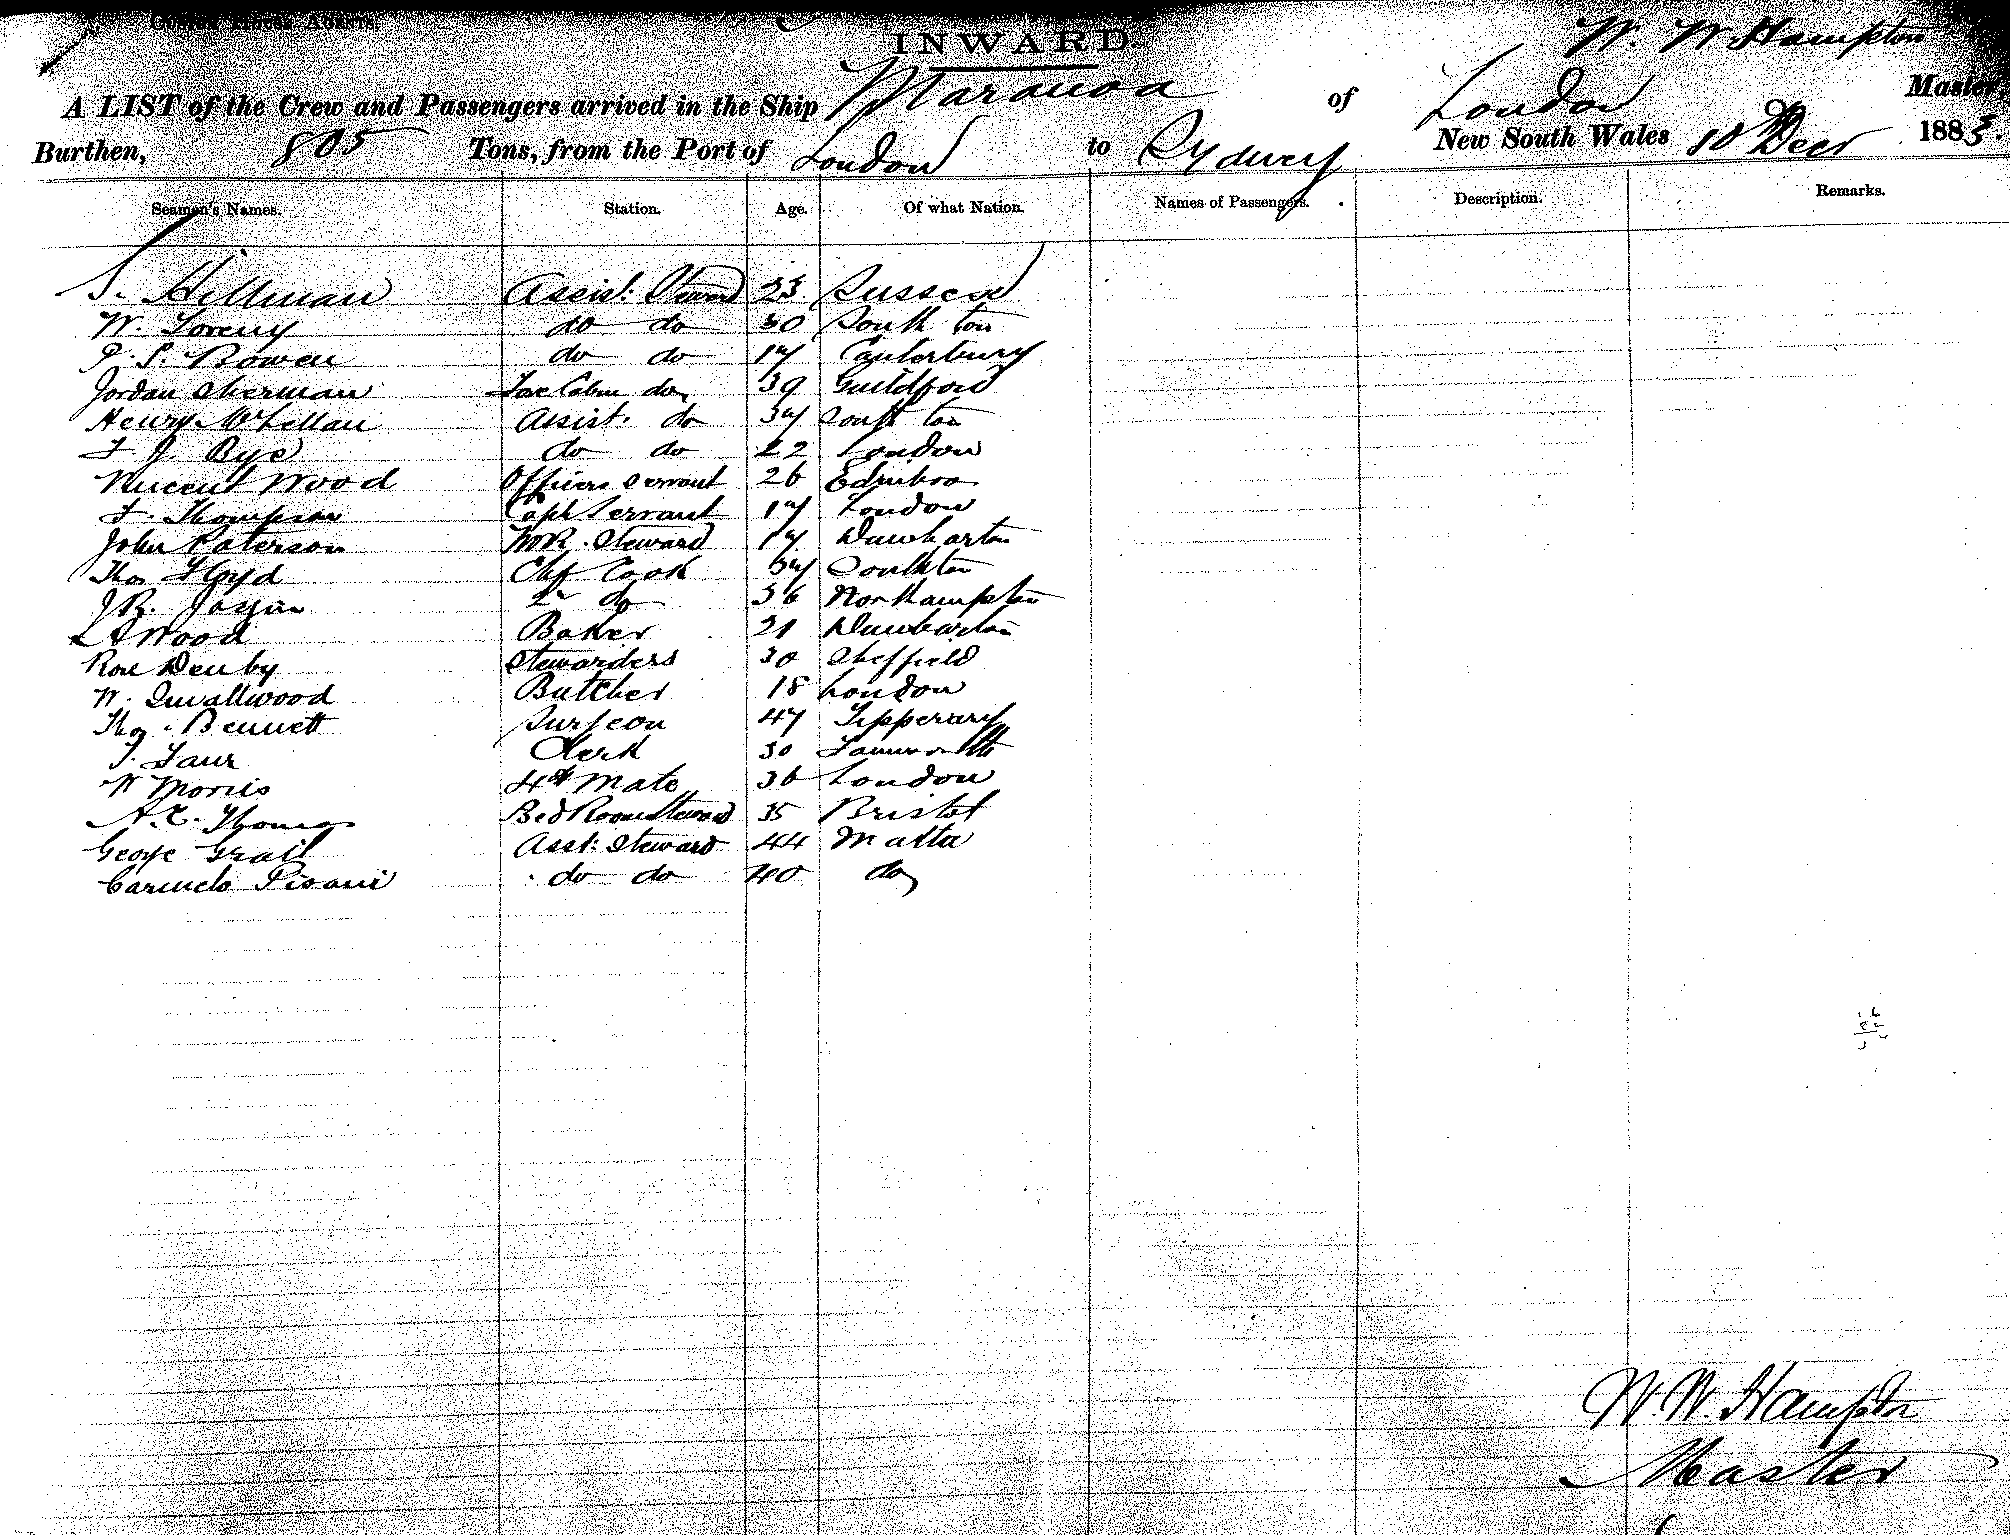 INWARD.
W. W. Hampton
A LIST of the Crew and Passengers arrived in the Ship Maranoa of London Master,
Burthen, 805 Tons, from the Port of London to Sydney New South Wales 10 Decr 1883.
Seamen's Names. Station. Age. Of what Nation. Names of Passengers. Description. Remarks.
S. Hillman Assist: Steward 23 Sussex
W. do do 30 South ton
J. S. Bowen do do 17 Canterbury
Jordan Sherman Fore Cabin do 39 Guildford
Henry McLellan Assist. do 37 South ton
F J. Bye do do 22 London
Vincent Wood Officers Servant 26 Edinboro
F. Thompson Capt Servant 17 London
John Paterson Steward 17 Dumbarton
Thos Lloyd Chf Cook 37 Southton
J.R. 2n do 36 Northampton
Wood Baker 21 Dumbarton
Rose Denby Stewardess 30 Sheffield
W. Smallwood Butcher 18 London
Thos. Bennett Surgeon 47 Tipperary
Clerk 30 Tamworth
W Morris 4th Mate 36 London
A. E. Thomas Bed Room Steward 35 Bristol
George Grail Asst: Steward 44 Malta
Carmelo Pisani do do 40 do
W. W. Hampton
Master